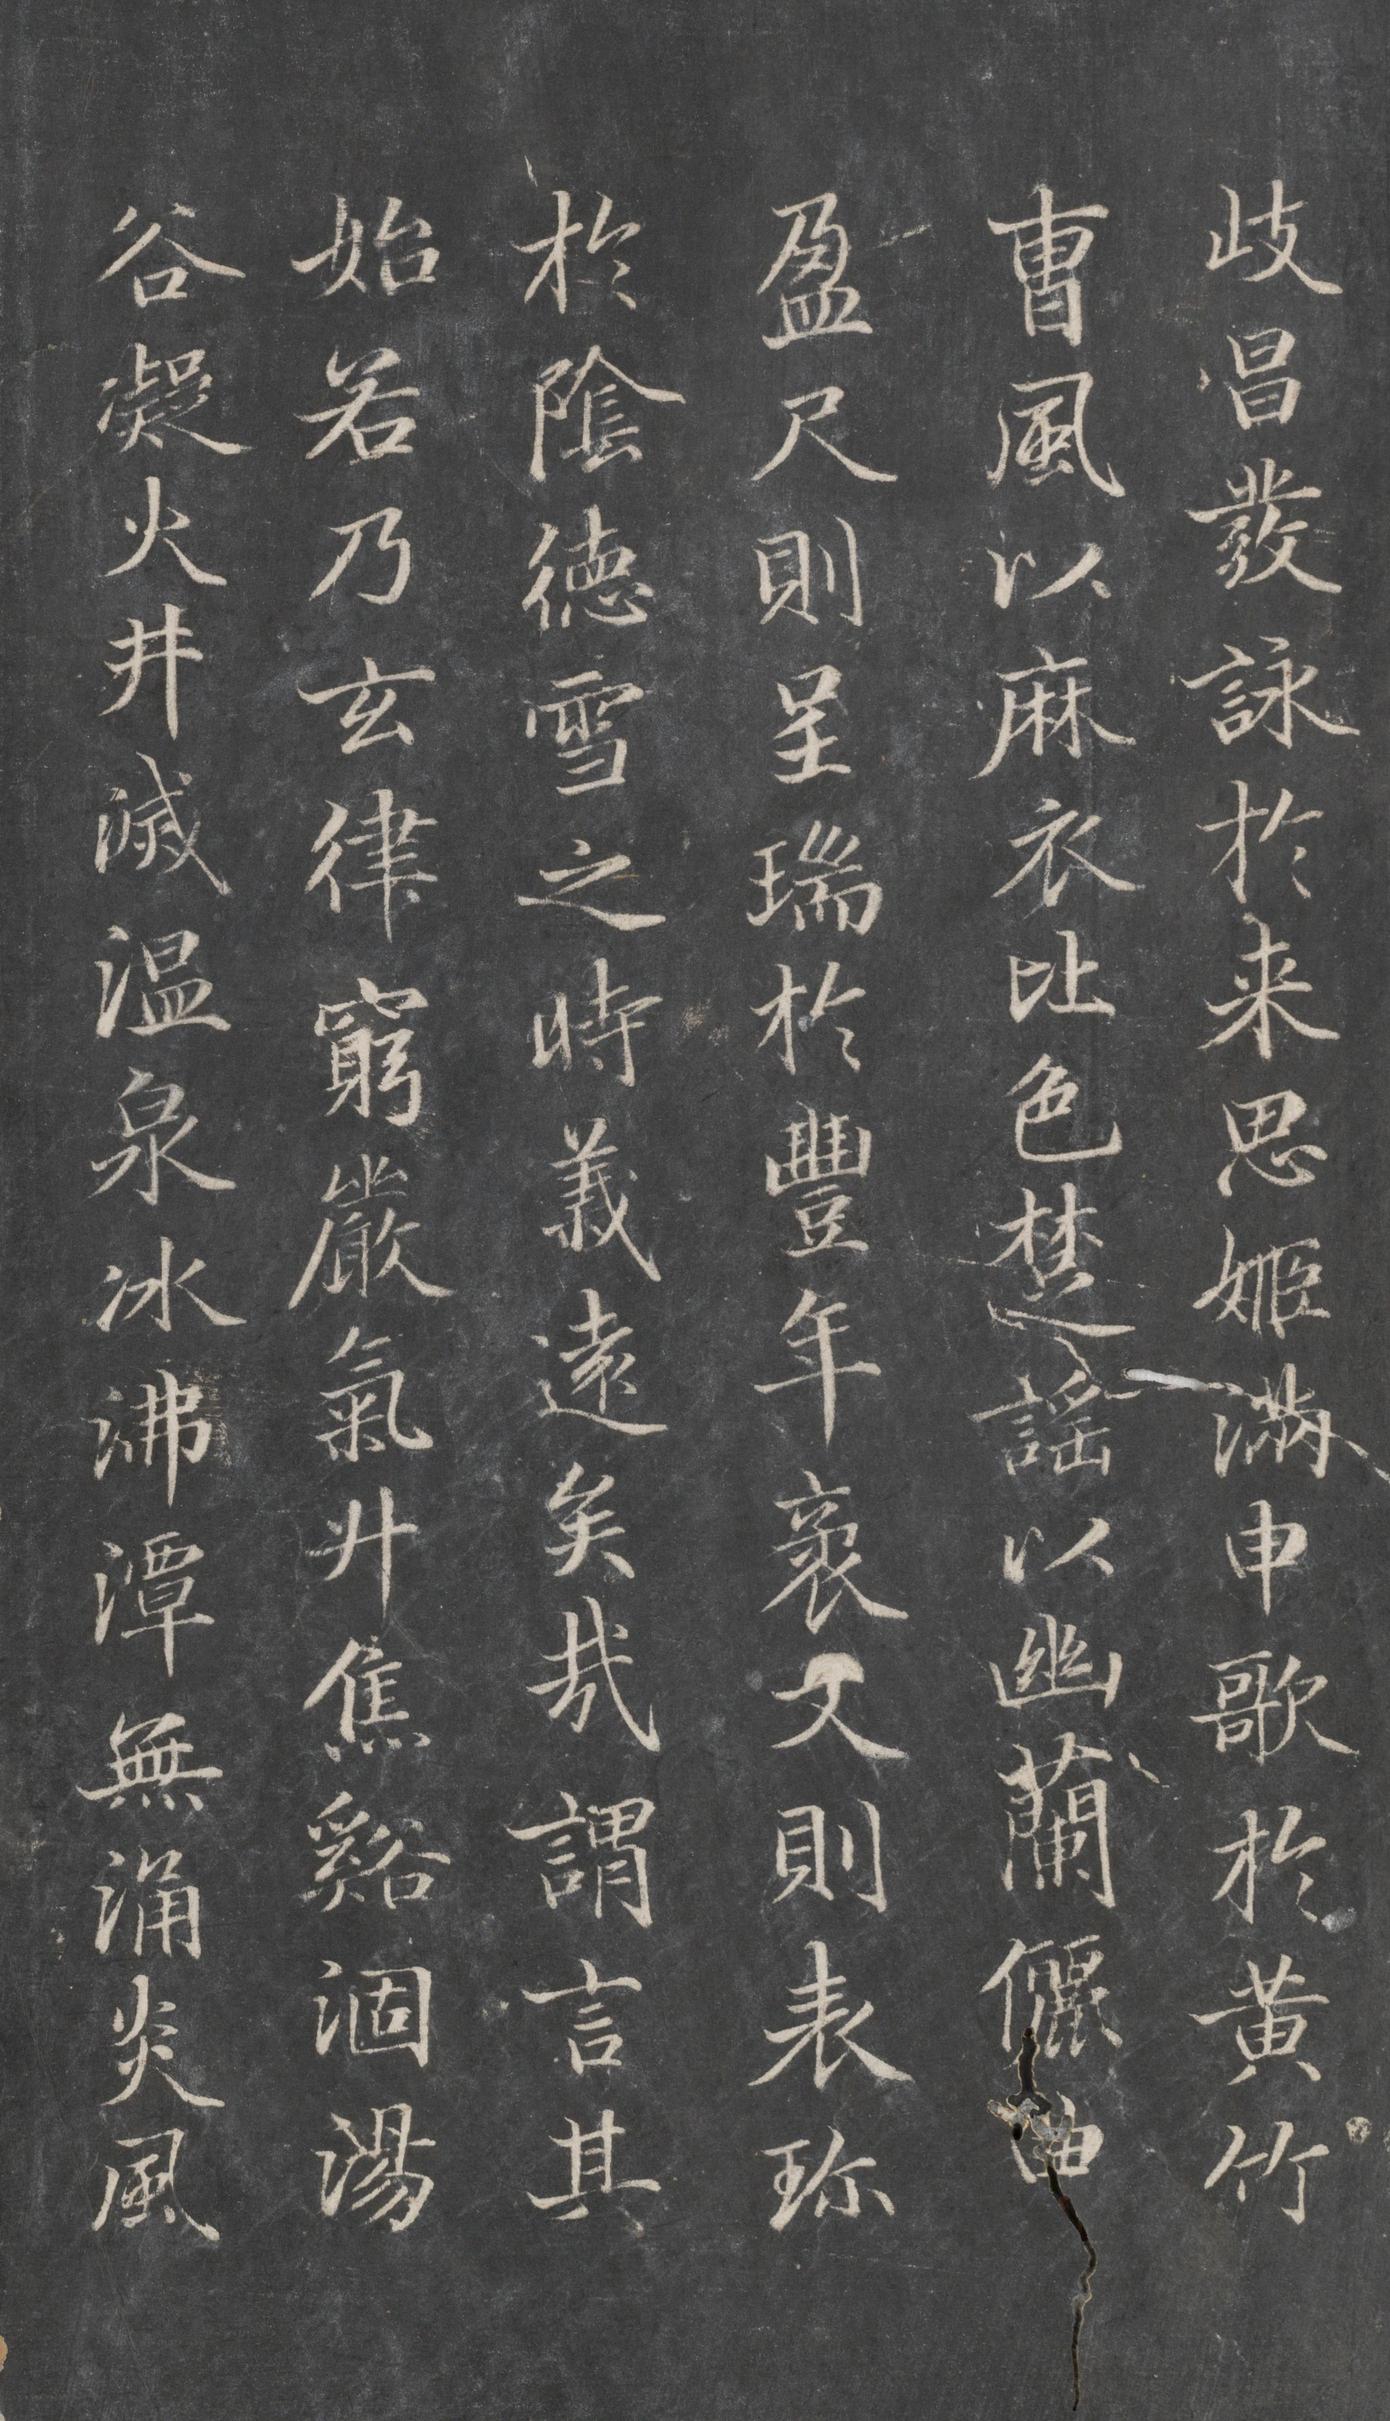 歧昌發詠於来思姬滿申歌於黃竹
曹風以麻衣比色楚謡以幽蘭儷曲
盈尺則呈瑞於豐年袤丈則表珎
於隂德雪之時義遠矣㢤謂言其
始若乃玄律窮嚴氣升焦谿涸湯
谷凝火井滅温泉冰沸潭無涌炎風